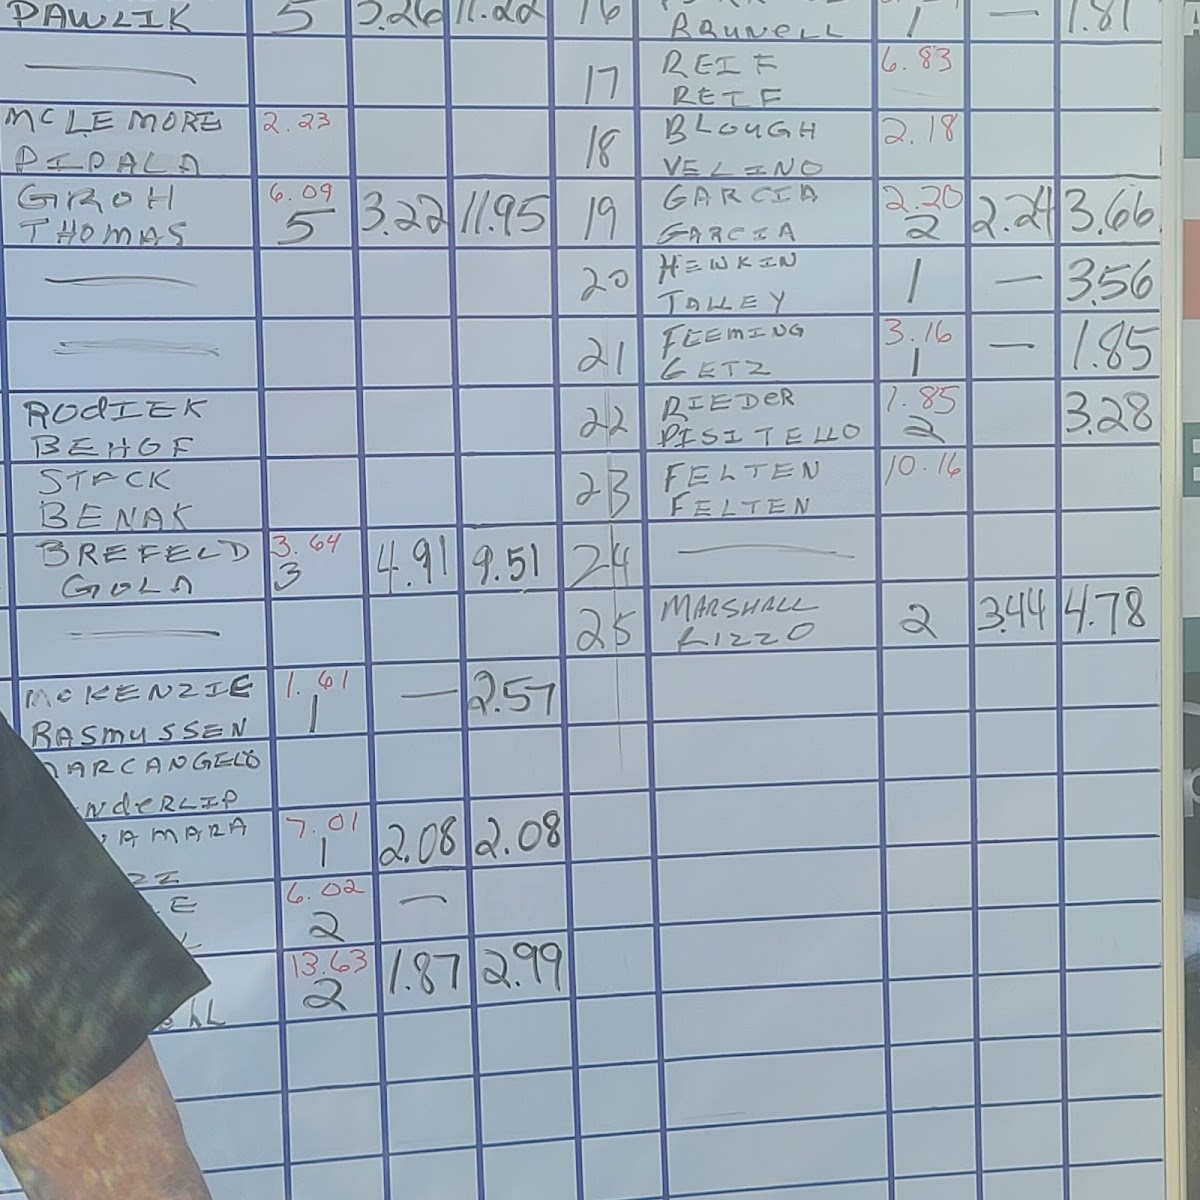 PAWLIK 5 5.26 11.22 16 BRUNELL 1 — 1.81
— 17 REIF 6.83
REIF
MCLEMORE 2.23 18 BLOUGH 2.18
PIPALA VELINO
GROH 6.09 3.22 11.95 19 GARCIA 2.20 2.24 3.66
THOMAS 5 GARCIA 2
— 20 HEWKIN 1 — 3.56
TALLEY
— 21 FLEMING 3.16 — 1.85
GETZ 1
RODIEK 22 RIEDER 1.85 3.28
BEHOF PISITELLO 2
STACK 23 FELTEN 10.16
BENAK FELTEN
BREFELD 3.64 4.91 9.51 24 —
GOLA 3
— 25 MARSHALL 2 3.44 4.78
RIZZO
MCKENZIE 1.61 — 2.57
RASMUSSEN 1
ARCANGELO
NDERLIP
AMARA 7.01 2.08 2.08
1
ZI
E 6.02 —
L 2
13.63 1.87 2.99
2
hL